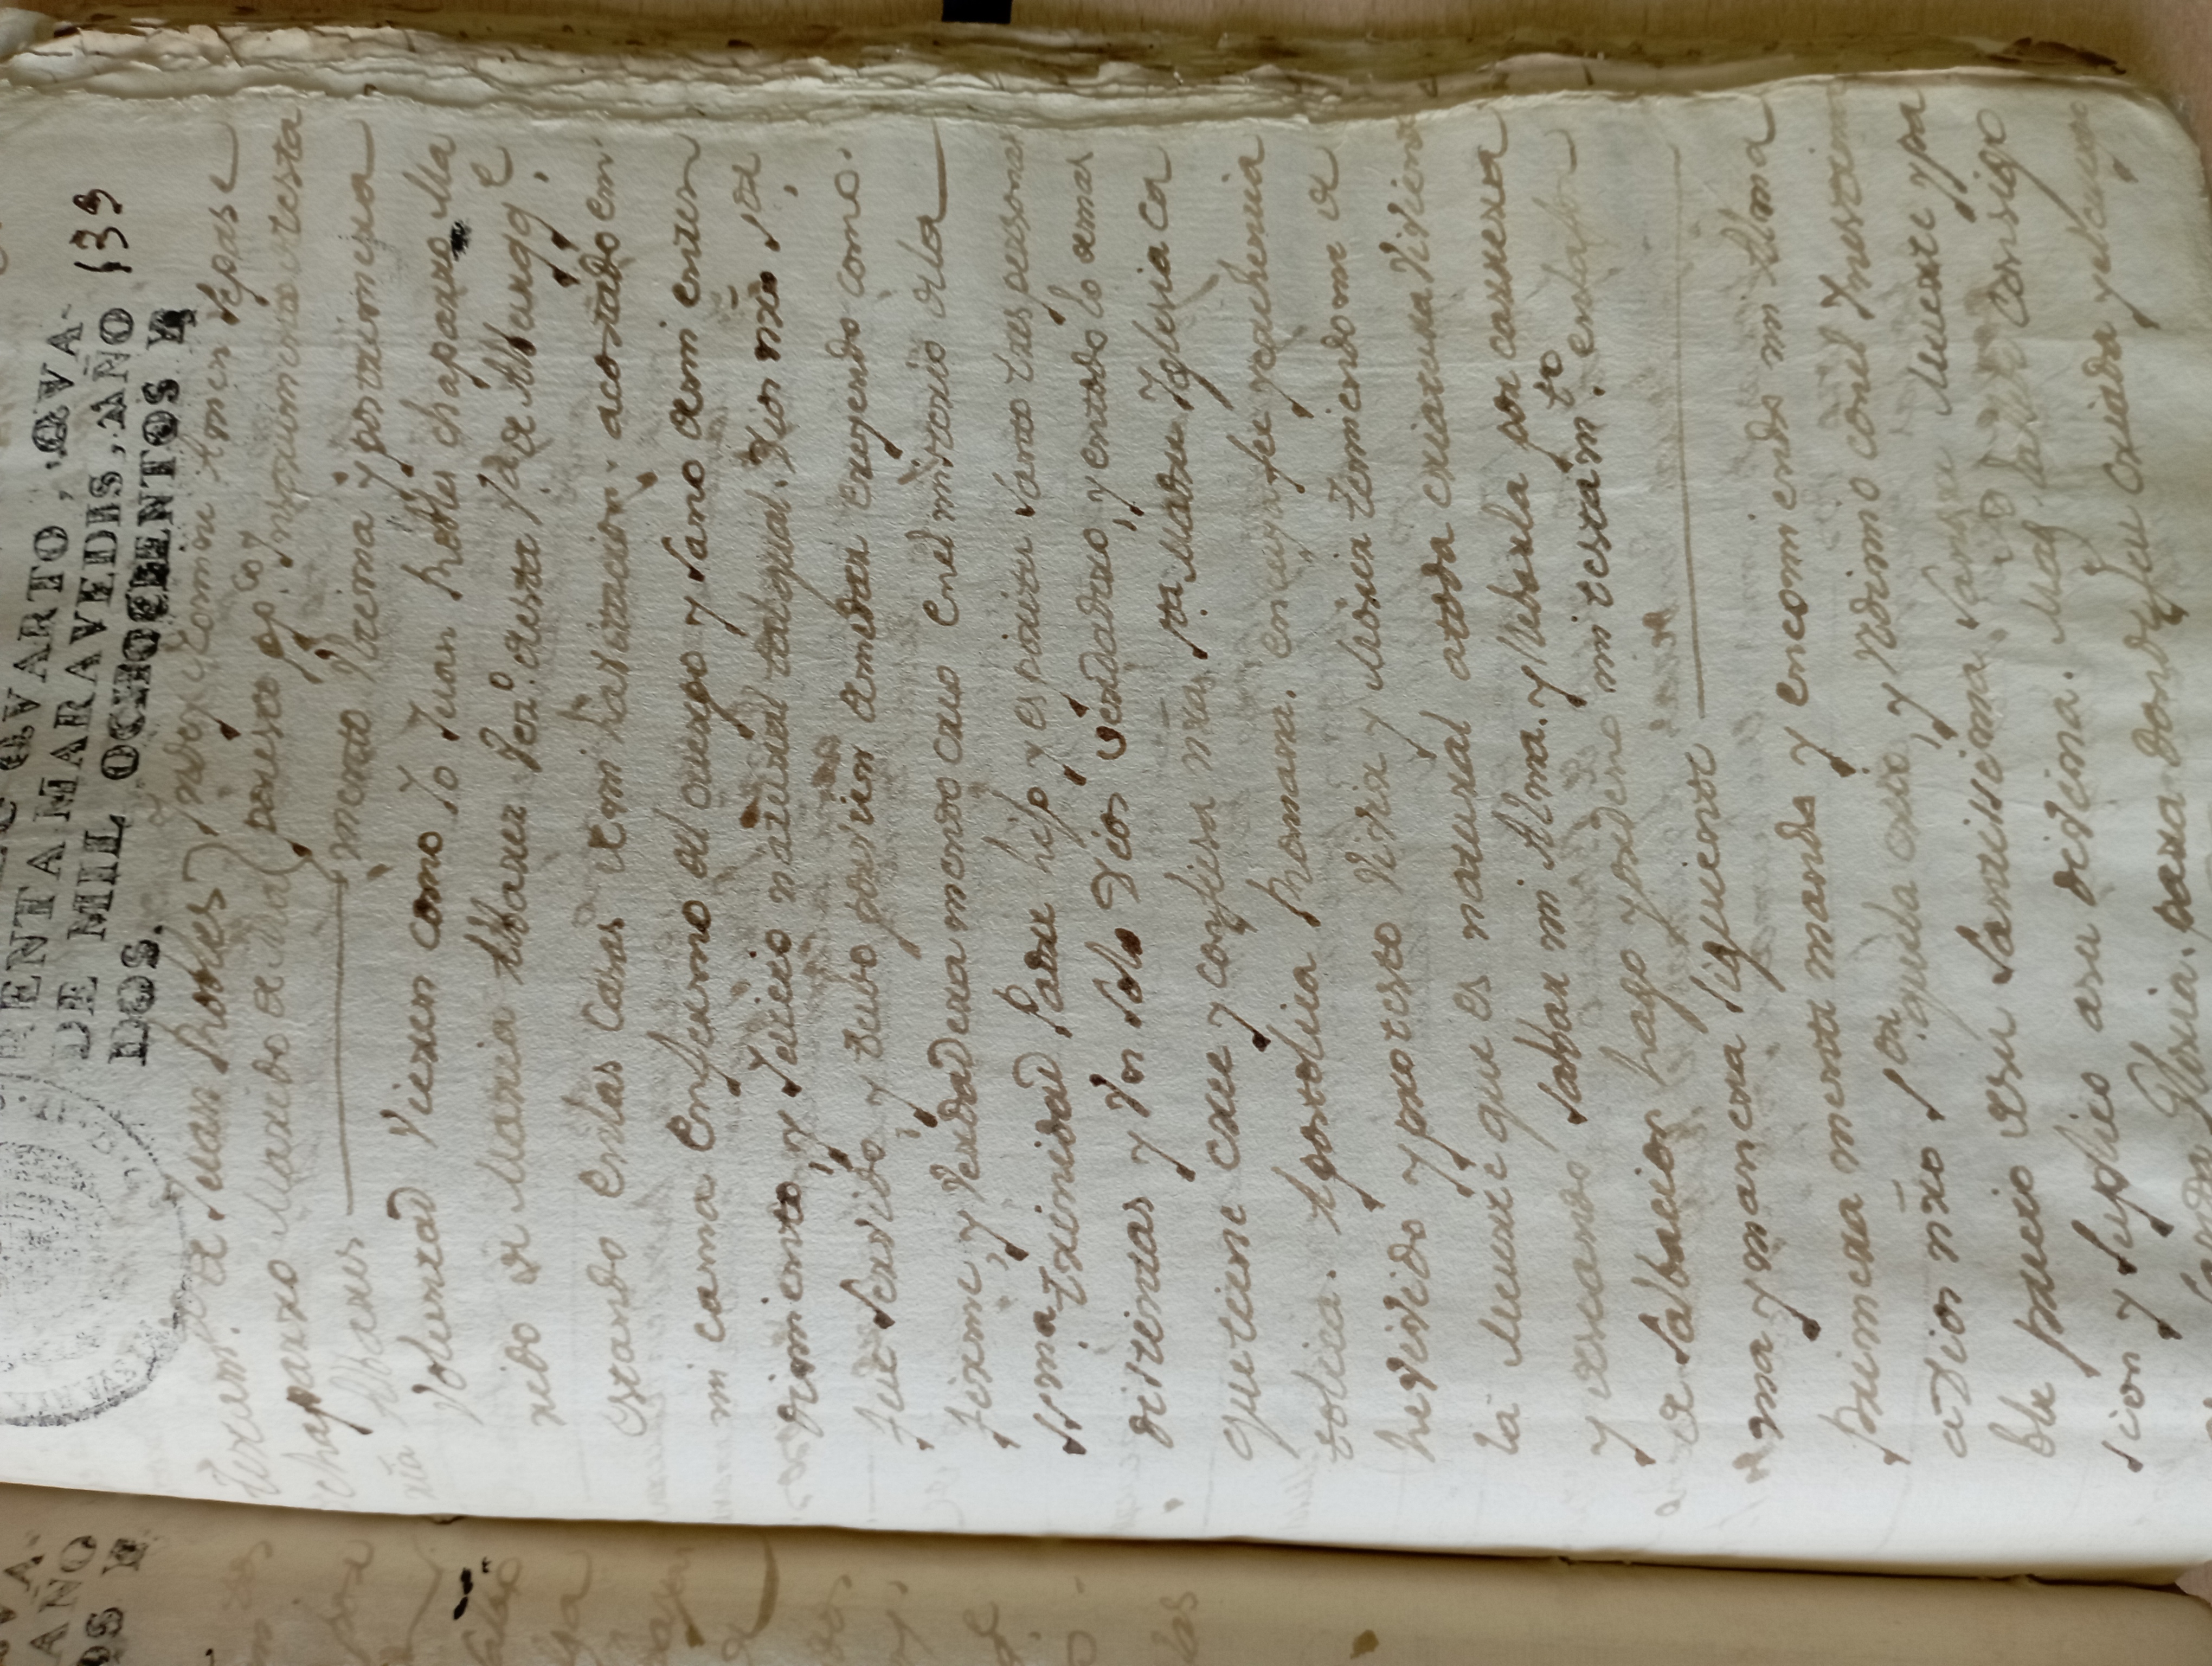 QVARTO, QVA-
RENTA MARAVEDIS, AÑO
DE MIL OCHOCIENTOS Y
DOS.
139
Testam.to de Juan Robles
chaparro Marido de Ma
ria Albares
Indey Nomine Amen Sepase
por este pp.co Instrumento de testa
mento Vltima y postrimera
Voluntad Vieren como Yo Juan Robles chaparro Ma
rido de Maria Albarez Vez.o desta V.a de Alburqq.e
estando en las Casas de mi havitacion acostado en
mi cama enfermo del cuerpo y Sano de mi enten
dimiento, y Juicio natural tal qual Dios nro S.or
fue Servido, y tubo por vien de me dar creyendo como
firme, y Verdaderamendo creo en el misterio de la
SS.ma trinidad Padre hijo y espiritu Santo tres personas
distintas y Vn Solo Dios verdadero, y entodo lo demas
que tiene cree y confiesa nra S.ta Madre Iglesia Ca
tolica. Apostolica Romana. en cuya fee y crehencia
he vivido y protesto Vivir y Morir temiendome de
la Muerte que es natural atoda criatura Viviente
y deseando Salbar mi Alma. y llebarla por carrera
de Salbacion hago y ordeno mi testam.to en la for
ma y manera Siguiente
primera mente mando y encomiendo mi Alma
a Dios nro S.or que la crio, y redimio con el Inestima
ble precio de su Santissima Sangre Muerte y pa
sion y Suplico asu divina. Mag.d la lleve Consigo
Gloria. para donde fue criada y el cuerpo